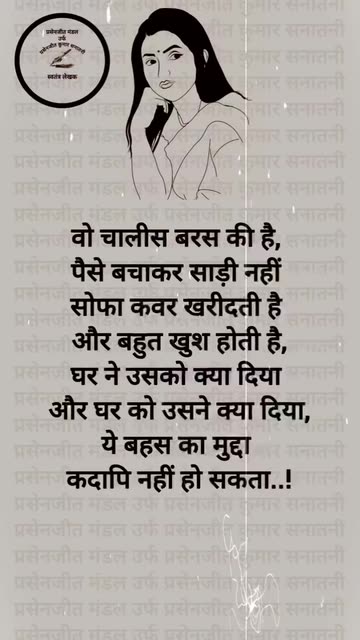 प्रसेनजीत मंडल
उर्फ
प्रसेनजीत कुमार सनातनी
स्वतंत्र लेखक
वो चालीस बरस की है,
पैसे बचाकर साड़ी नहीं
सोफा कवर खरीदती है
और बहुत खुश होती है,
घर ने उसको क्या दिया
और घर को उसने क्या दिया,
ये बहस का मुद्दा
कदापि नहीं हो सकता..!